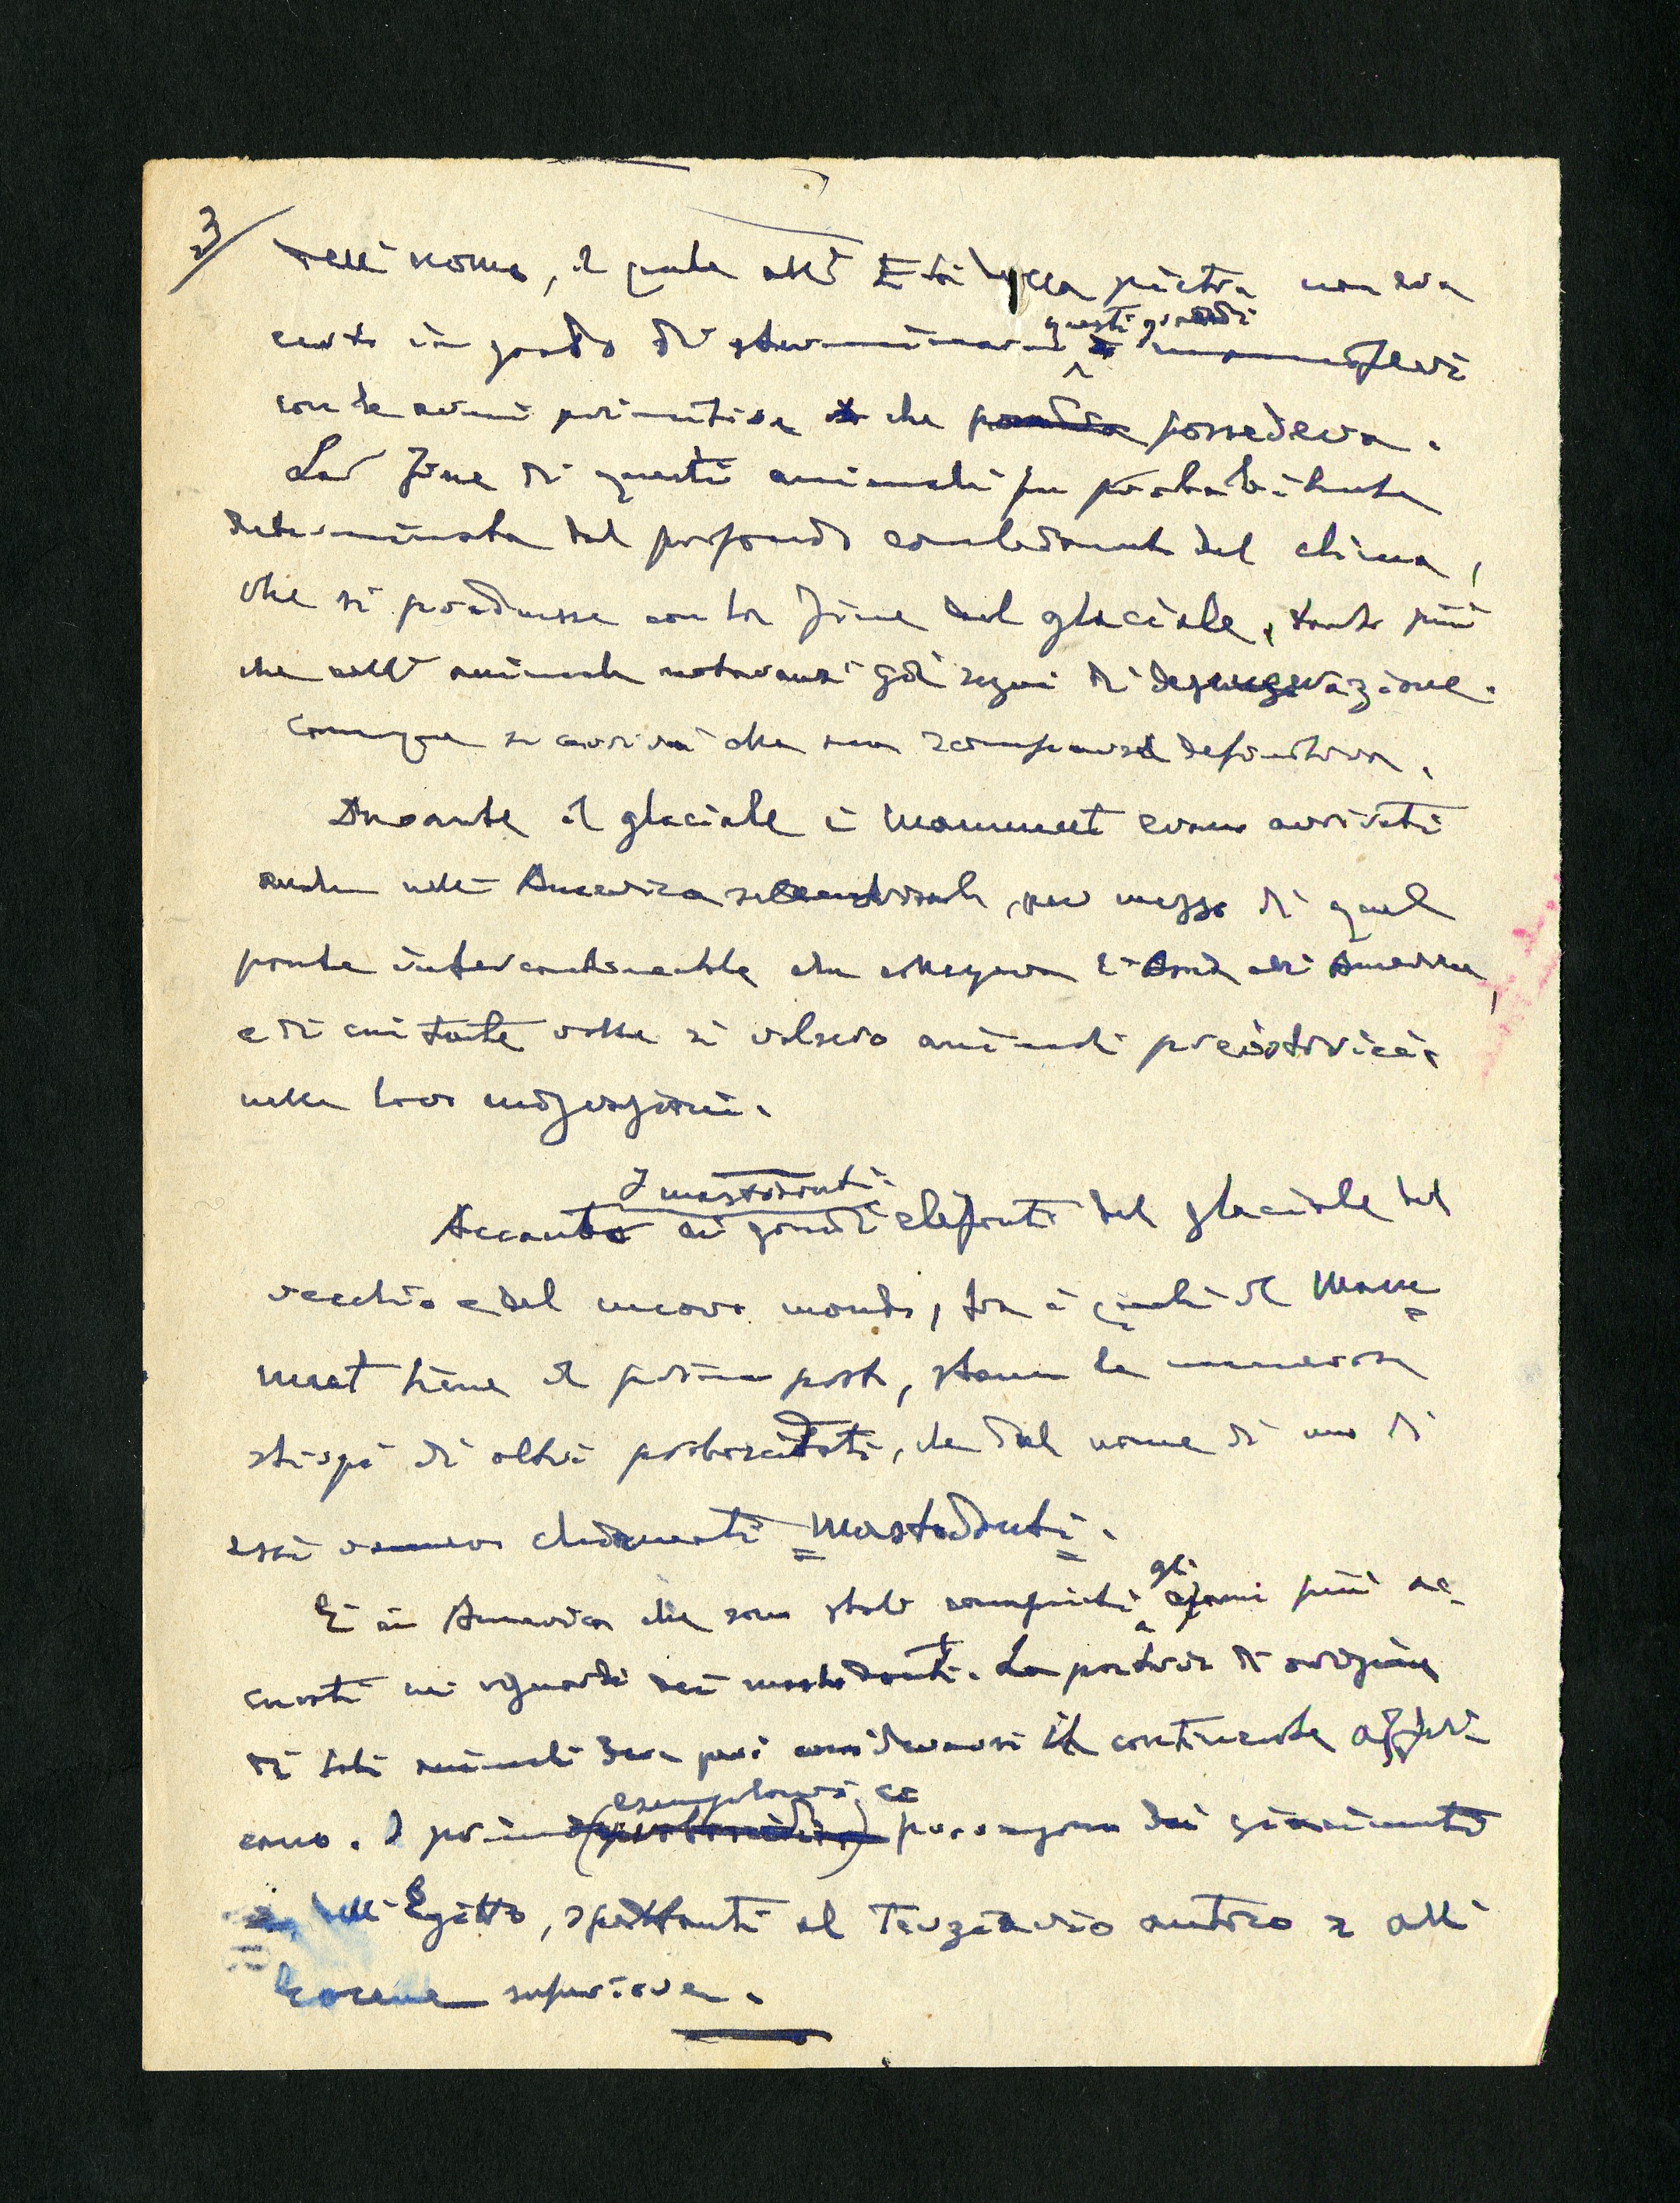 3/
dell'uomo, il quale all'Età della pietra non era
certo in grado di sterminare questi grandi mammiferi
con le armi primitive che possedeva.
La fine di questi animali fu probabilmente
determinata dal profondo cambiamento del clima,
che si produsse con la fine del glaciale, tanto più
che nell'animale notavansi già segni di degenerazione.
Comunque si arrivò alla sua scomparsa definitiva.
Durante il glaciale i Mammut erano arrivati
anche nell'America settentrionale, per mezzo di quel
ponte intercontinentale che collegava l'Asia all'America,
e di cui tante volte si valsero animali preistorici
nelle loro migrazioni.
I mastodonti.
Accanto ai grandi elefanti del glaciale del
vecchio e del nuovo mondo, fra i quali il Mam=
mut tiene il primo posto, stanno le numerose
stirpi di altri proboscidati, che dal nome di uno di
essi vennero chiamati = Mastodonti =.
È in America che sono stati compiuti gli esami più ac=
curati nei riguardi dei mastodonti. La patria di origine
di tali animali deve però considerarsi il continente affri=
cano. I primi esemplari ce
provengono dai giacimenti
dell'Egitto, spettanti al Terziario antico e all'
Eocene superiore.